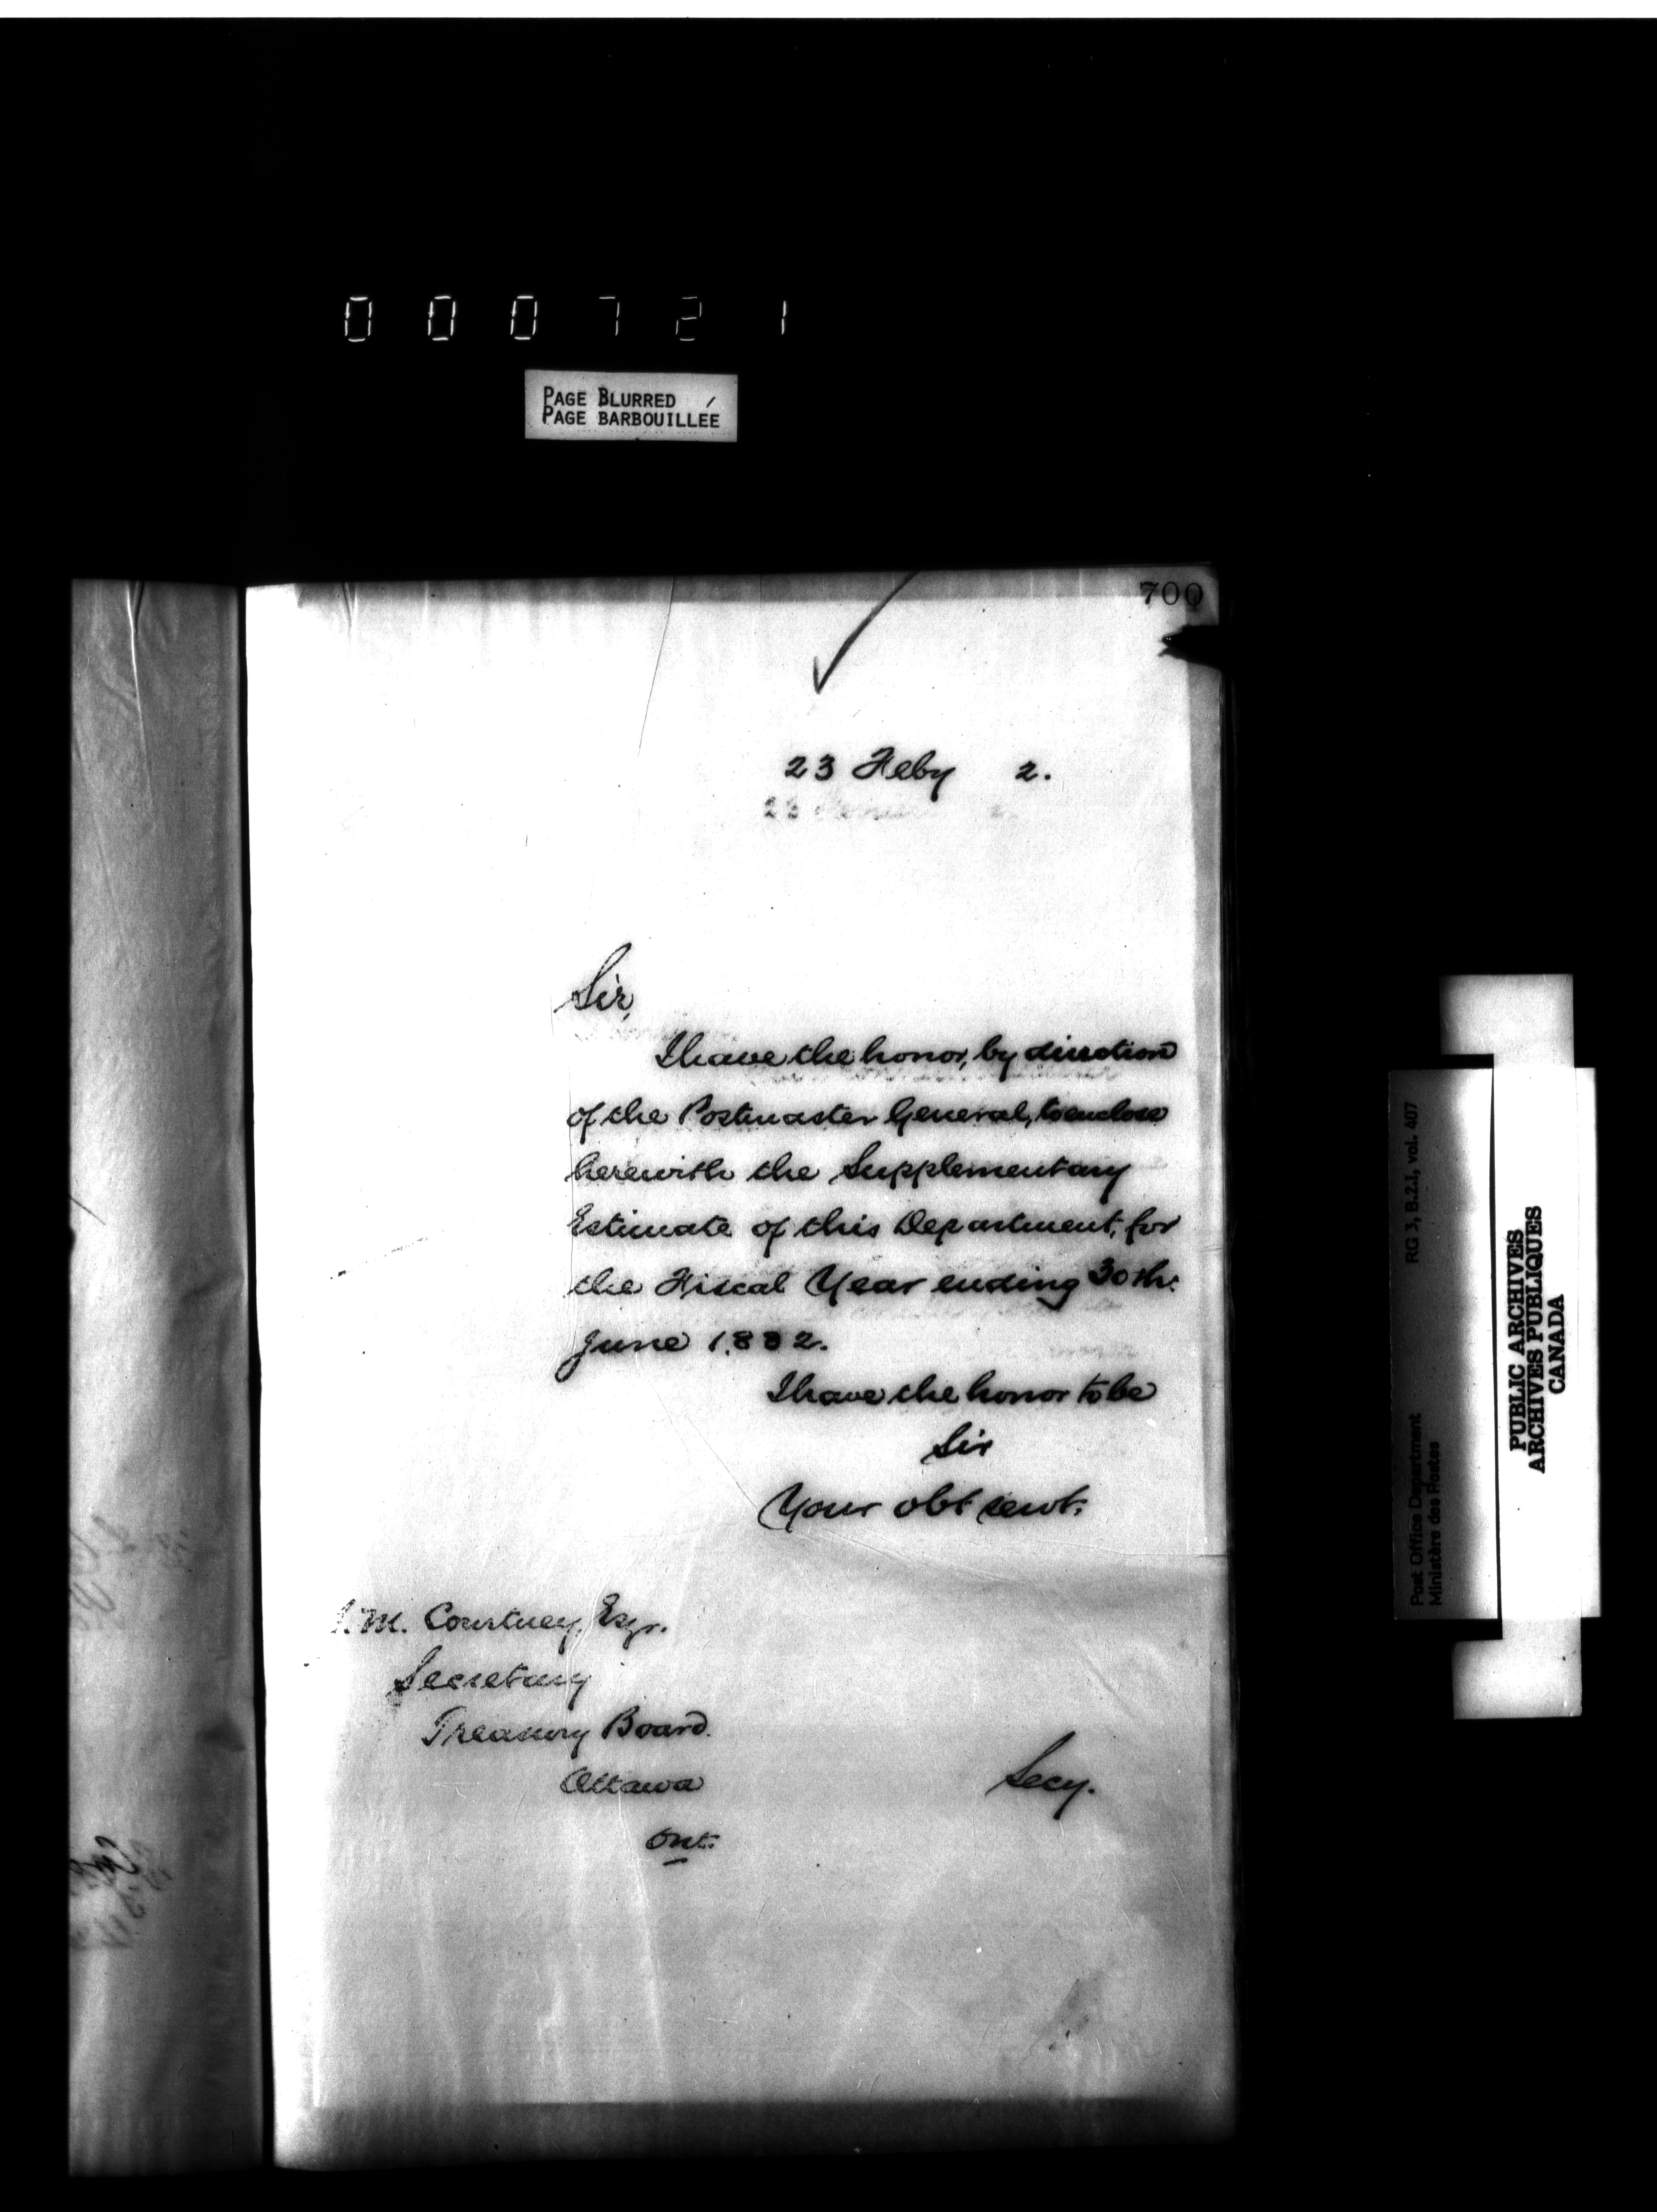 000721
PAGE BLURRED
PAGE BARBOUILLÉE
700
23 Feby 2.
Sir,
I have the honor, by direction
of the Postmaster General, to enclose
herewith the Supplementary
Estimate of this Department, for
the Fiscal Year ending 30th.
June 1882.
I have the honor to be
Sir
Your obt servt.
M. Courtney, Esqr.
Secretary
Treasury Board.
Ottawa
Ont.
Secy.
RG 3, B.2.1, vol. 407
Post Office Department
Ministère des Postes
PUBLIC ARCHIVES
ARCHIVES PUBLIQUES
CANADA